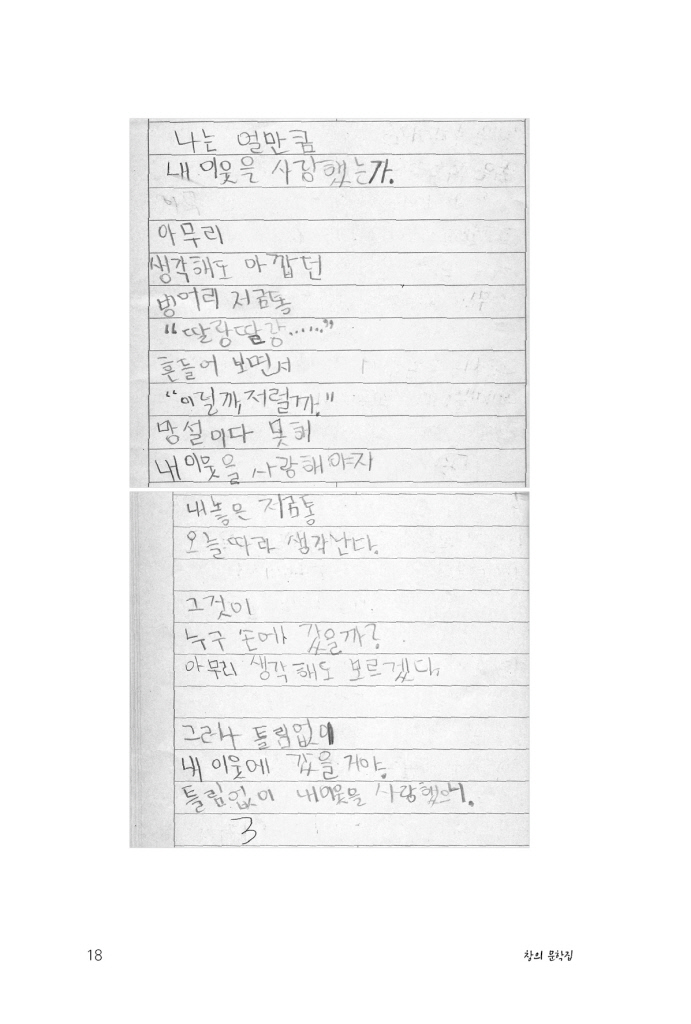 나는 얼만큼
내 이웃을 사랑했는가.
아무리
생각해도 아깝던
벙어리 저금통
“딸랑딸랑……”
흔들어 보면서
“이럴까, 저럴까.”
망설이다 못해
내 이웃을 사랑해야지
내놓은 저금통
오늘따라 생각난다.
그것이
누구 손에 갔을까?
아무리 생각해도 모르겠다.
그러나 틀림없이
내 이웃에 갔을 거야.
틀림없이 내이웃을 사랑했으니.
3
18
창의 문학집